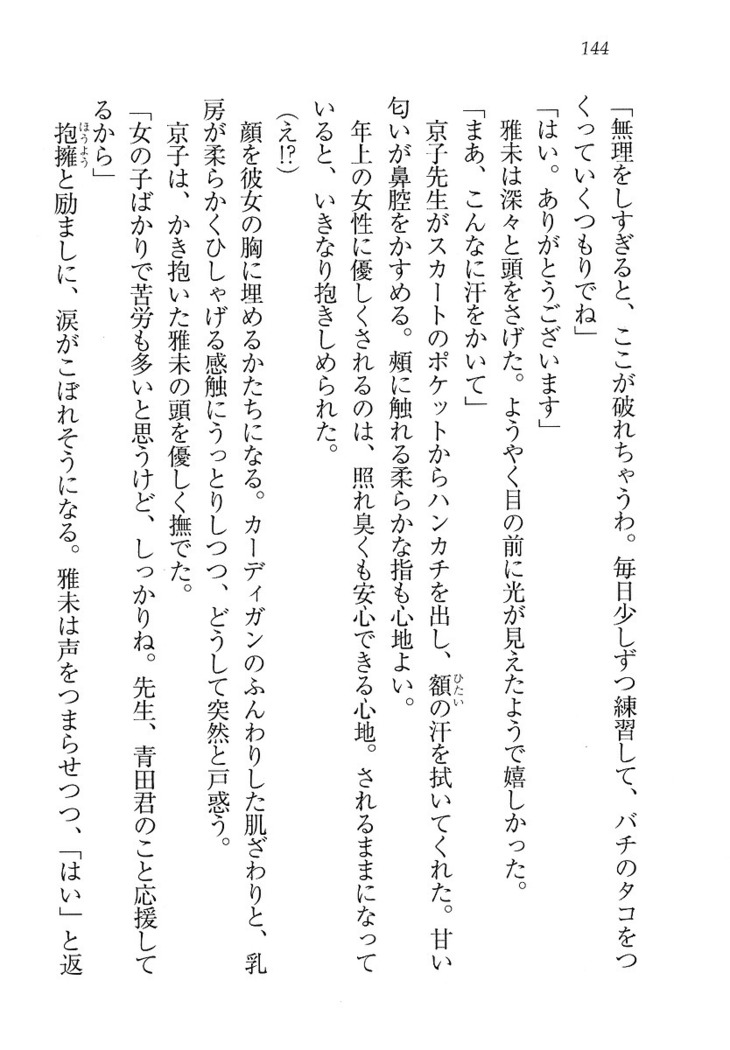 144
「無理をしすぎると、ここが破れちゃうわ。毎日少しずつ練習して、バチのタコをつ
くっていくつもりでね」
「はい。ありがとうございます」
雅未は深々と頭をさげた。ようやく目の前に光が見えたようで嬉しかった。
「まあ、こんなに汗をかいて」
京子先生がスカートのポケットからハンカチを出し、額の汗を拭いてくれた。甘い
ひたい
匂いが鼻腔をかすめる。頰に触れる柔らかな指も心地よい。
年上の女性に優しくされるのは、照れ臭くも安心できる心地。されるままになって
いると、いきなり抱きしめられた。
(え!?)
顔を彼女の胸に埋めるかたちになる。カーディガンのふんわりした肌ざわりと、乳
房が柔らかくひしゃげる感触にうっとりしつつ、どうして突然と戸惑う。
京子は、かき抱いた雅未の頭を優しく撫でた。
「女の子ばかりで苦労も多いと思うけど、しっかりね。先生、青田君のこと応援して
るから」
抱擁と励ましに、涙がこぼれそうになる。雅未は声をつまらせつつ、「はい」と返
ほうよう